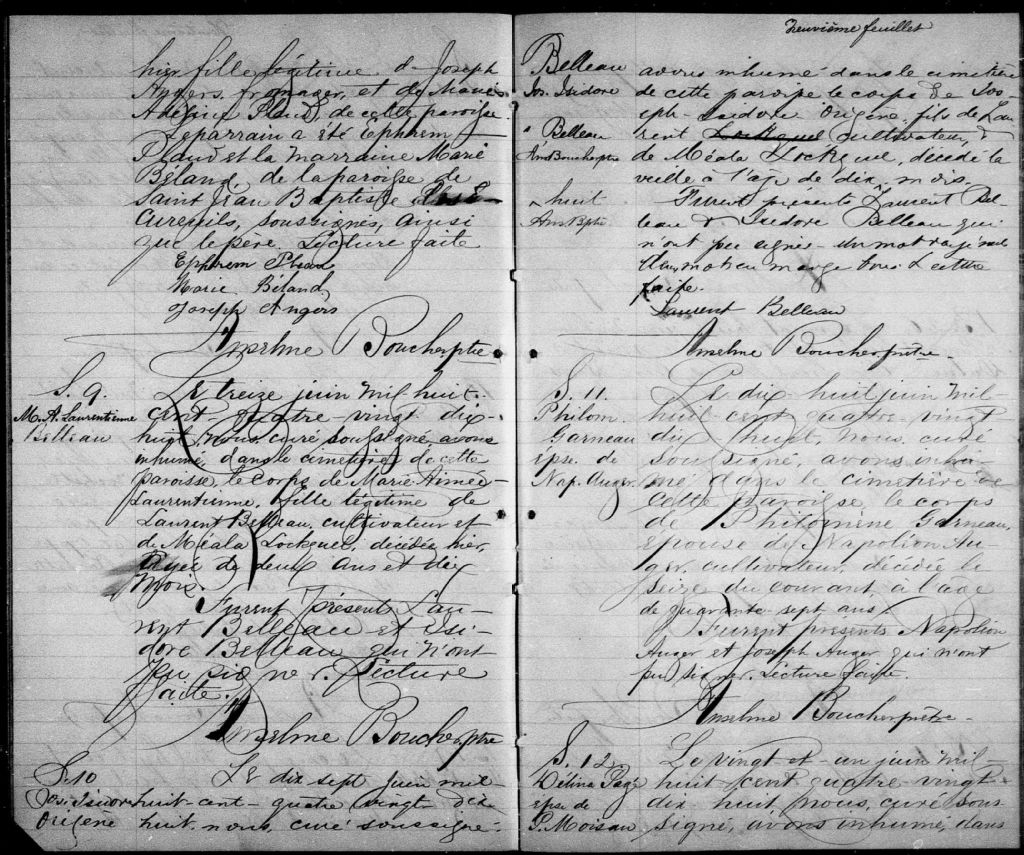 hier, fille légitime de Joseph
Angers, fromager, et de Marie
Adéline Plaud, de cette paroisse.
Le parrain a été Ephrem
Plaud et la marraine Marie
Béland, de la paroisse de
Saint Jean Baptiste
Écureuils, soussignés, ainsi
que le père. Lecture faite
Ephrem Plaud
Marie Béland
Joseph Angers
Anselme Boucher ptre
S. 9.
M. A. Laurentienne
Belleau
Le treize juin mil huit-
cent quatre vingt dix
huit, nous, curé soussigné, avons
inhumé, dans le cimetière de cette
paroisse, le corps de Marie Aimée
Laurentienne, fille légitime de
Laurent Belleau, cultivateur et
de Méala Lockquel, décédée hier,
âgée de deux ans et dix
mois.
Furent présent Lau-
rent Belleau et Isi-
dore Belleau qui n'ont
pu signer. Lecture
faite.
Anselme Boucher ptre
S. 10
Jos. Isidore
Origène
Le dix sept juin mil
huit-cent-quatre vingt dix
huit, nous, curé soussigné
Neuvième feuillet
Belleau
Jos. Isidore
Belleau
Ans Boucher ptre
huit
Ans B ptre
avons inhumé dans le cimetière
de cette paroisse le corps de Jos-
eph-Isidore Origène, fils de Lau-
rent Lockquel cultivateur, &
de Méala Lockquel, décédé la
veille à l'age de dix mois.
Furent présents Laurent Bel-
leau & Isidore Belleau qui
n'ont pu signé - Un mot rayé nul
deux mots en marge bons Lecture
faite.
Laurent Belleau
Anselme Boucher prêtre.
S. 11.
Philom.
Garneau
épse. de
Nap. Auger.
Le dix huit juin mil-
huit-cent quatre-vingt
dix huit, nous, curé
soussigné, avons inhu-
mé dans le cimetière de
cette paroisse, le corps
de Philomène Garneau,
épouse de Napoléon Au-
ger, cultivateur, décédée le
seize du courant, à l'age
de quarante sept ans.
Furent présents Napoléon
Auger et Joseph Auger qui n'ont
pu signer. Lecture faite.
Anselme Boucher prêtre-
S. 12
Délina Pagé
épse de
G. Moisan
Le vingt et-un juin mil-
huit-cent quatre-vingt-
dix huit, nous, curé sous-
signé, avons inhumé, dans